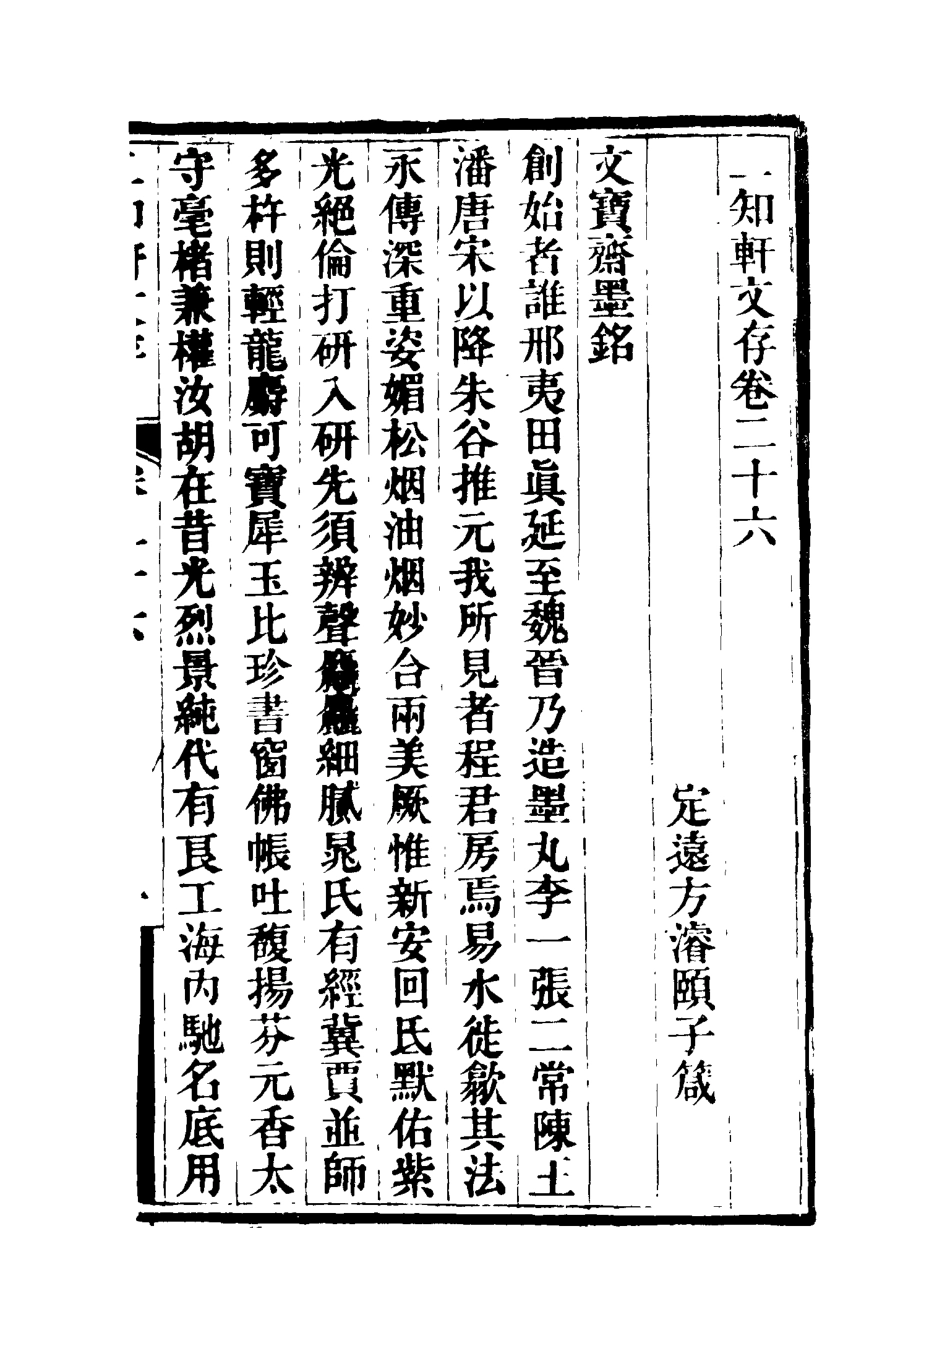 二知軒文存卷二十六
定遠方濬頤子箴
文寶齋墨銘
創始者誰邢夷田眞延至魏晉乃造墨丸李一張二常陳王
潘唐宋以降朱谷推元我所見者程君房焉易水徙歙其法
永傳深重姿媚松烟油烟妙合兩美厥惟新安回氏默佑紫
光絕倫打硏入硏先須辨聲細膩晁氏有經冀賈並師
多杵則輕龍麝可寶犀玉比珍書窗佛帳吐馥揚芬元香太
守毫楮兼權汝胡在昔光烈景純代有良工海內馳名底用